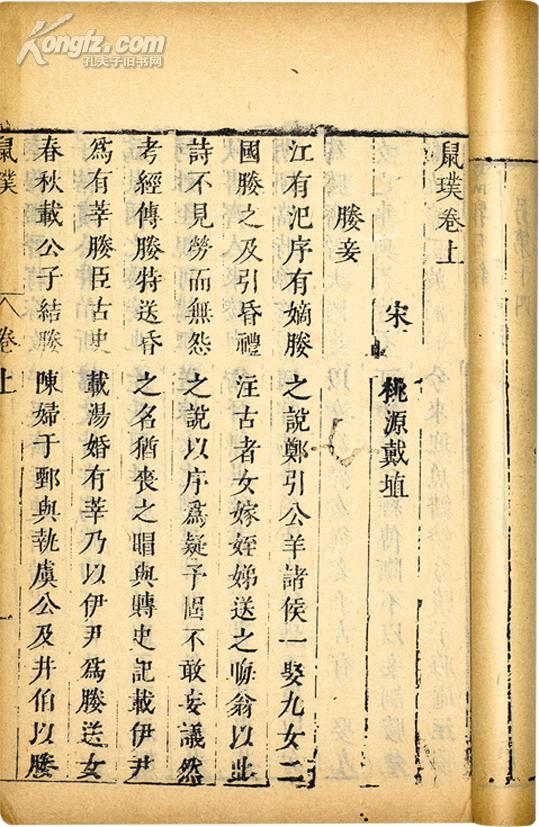 Kongfz.com
孔夫子旧书网
鼠璞卷上
宋 桃源戴埴
媵妾
江有汜序有嫡媵之說鄭引公羊諸侯一娶九女二
國媵之及引昏禮注古者女嫁姪娣送之晦翁以此
詩不見勞而無怨之說以序爲疑予固不敢妄議然
考經傳媵特送昏之名猶喪之賵與賻史記載伊尹
爲有莘媵臣古史載湯婚有莘乃以伊尹爲媵送女
春秋載公子結媵陳婦于鄄與執虞公及井伯以媵
鼠璞 卷上 一